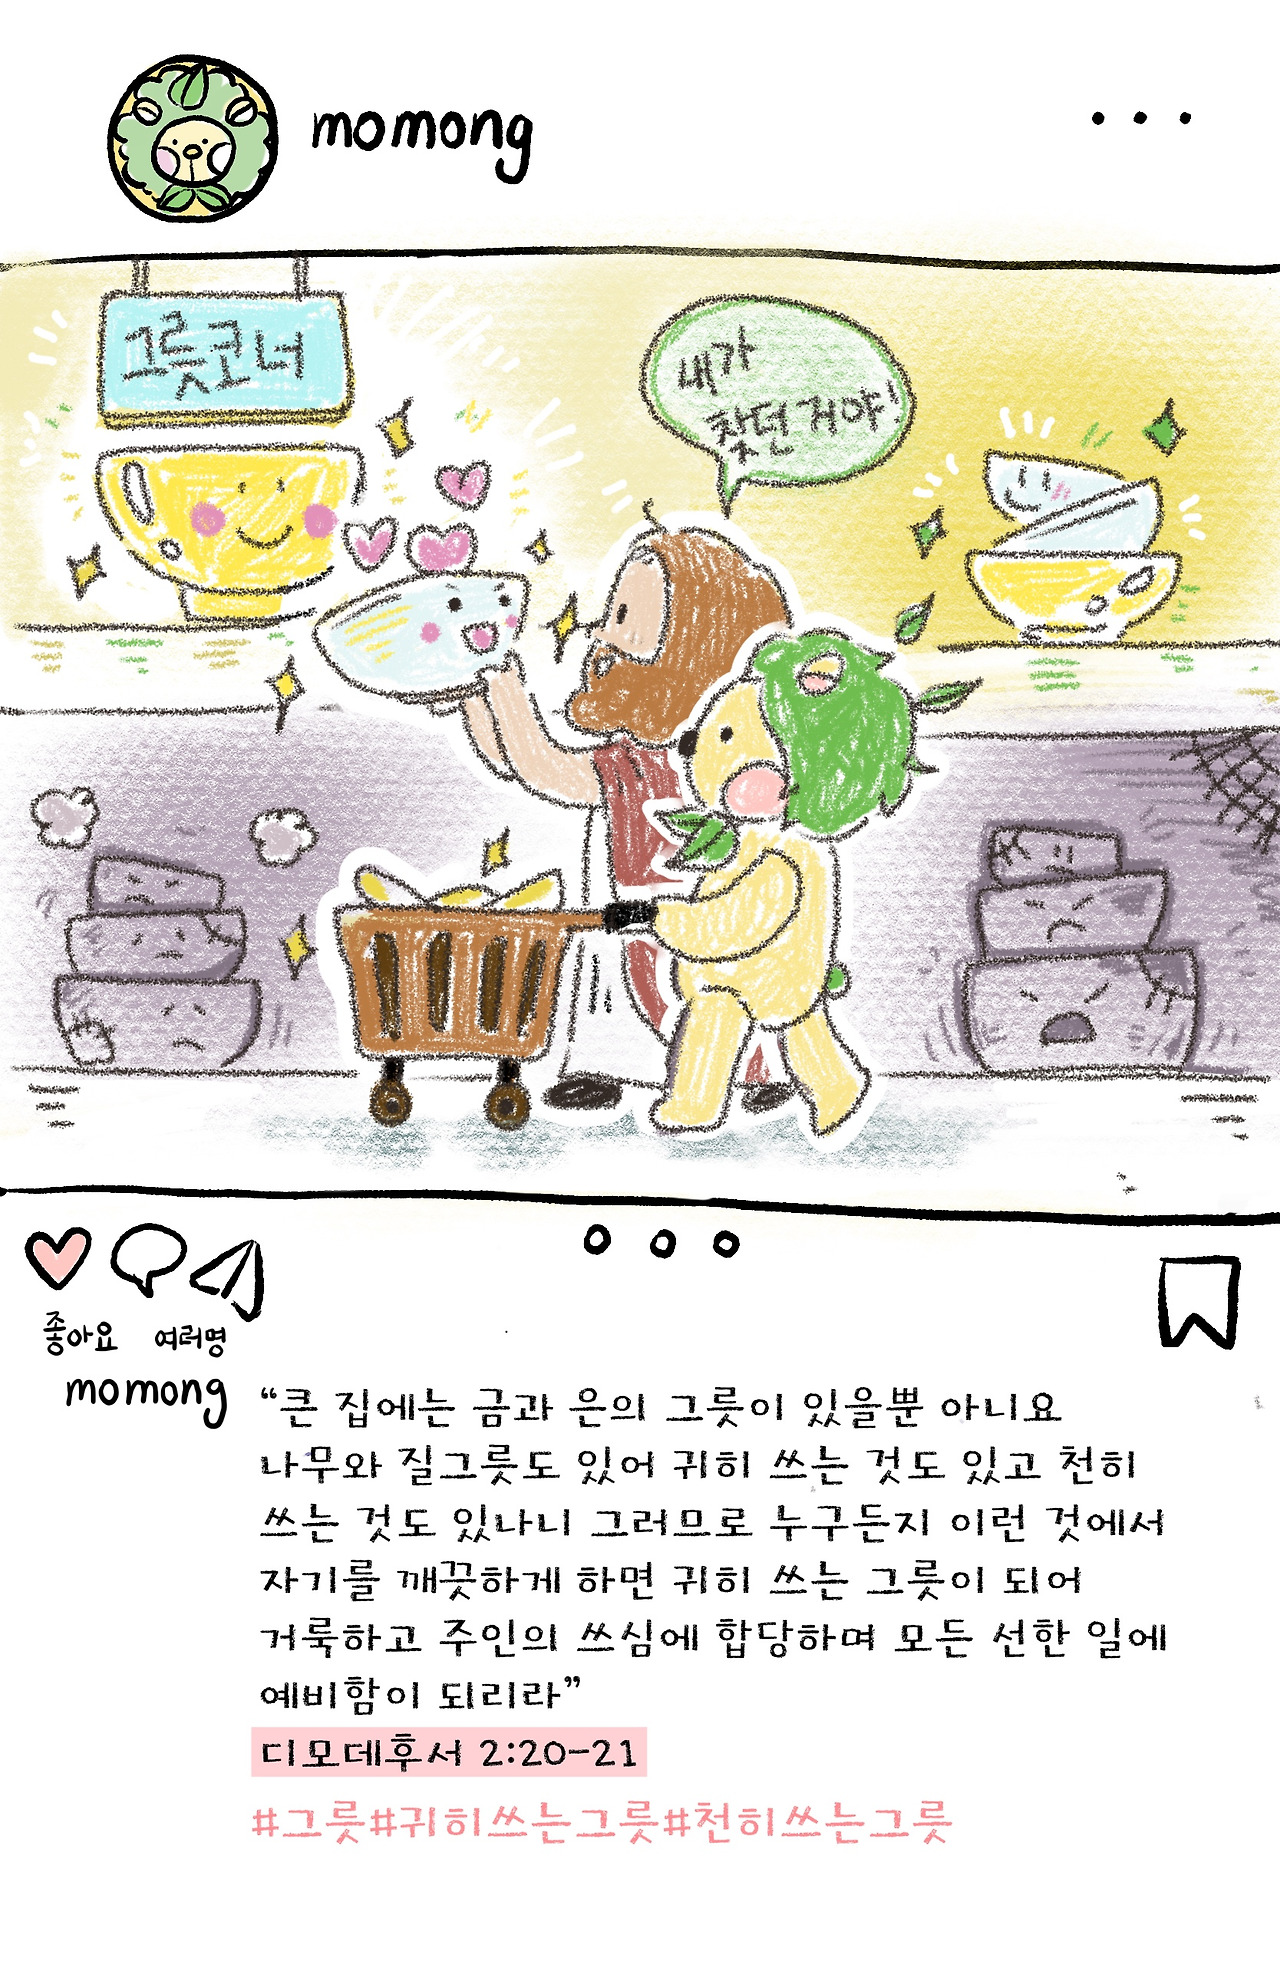 momong
그릇코너
내가
찾던거야!
좋아요 여러명
momong
“큰 집에는 금과 은의 그릇이 있을뿐 아니요
나무와 질그릇도 있어 귀히 쓰는 것도 있고 천히
쓰는 것도 있나니 그러므로 누구든지 이런 것에서
자기를 깨끗하게 하면 귀히 쓰는 그릇이 되어
거룩하고 주인의 쓰심에 합당하며 모든 선한 일에
예비함이 되리라”
디모데후서 2:20-21
#그릇#귀히쓰는그릇#천히쓰는그릇